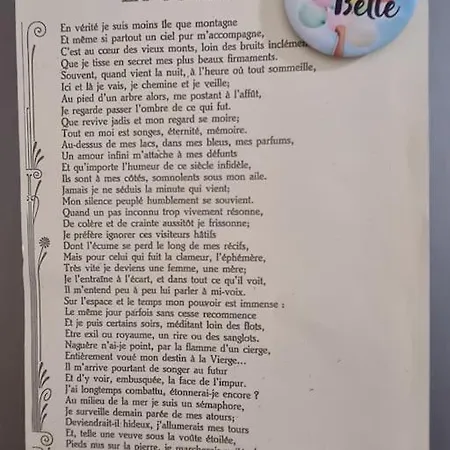 Belle
En vérité je suis moins île que montagne
Et même si partout un ciel pur m'accompagne,
C'est au cœur des vieux monts, loin des bruits inclémen
Que je tisse en secret mes plus beaux firmaments.
Souvent, quand vient la nuit, à l'heure où tout sommeille,
Ici et là je vais, je chemine et je veille;
Au pied d'un arbre alors, me postant à l'affût,
Je regarde passer l'ombre de ce qui fut.
Que revive jadis et mon regard se moire;
Tout en moi est songes, éternité, mémoire.
Au-dessus de mes lacs, dans mes bleus, mes parfums,
Un amour infini m'attache à mes défunts
Et qu'importe l'humeur de ce siècle infidèle,
Ils sont à mes côtés, somnolents sous mon aile.
Jamais je ne séduis la minute qui vient;
Mon silence peuplé humblement se souvient.
Quand un pas inconnu trop vivement résonne,
De colère et de crainte aussitôt je frissonne;
Je préfère ignorer ces visiteurs hâtifs
Dont l'écume se perd le long de mes récifs,
Mais pour celui qui fuit la clameur, l'éphémère,
Très vite je deviens une femme, une mère;
Je l'entraîne à l'écart, et dans tout ce qu'il voit,
Il m'entend peu à peu lui parler à mi-voix.
Sur l'espace et le temps mon pouvoir est immense :
Le même jour parfois sans cesse recommence
Et je puis certains soirs, méditant loin des flots,
Etre exil ou royaume, un rire ou des sanglots.
Naguère n'ai-je point, par la flamme d'un cierge,
Entièrement voué mon destin à la Vierge...
Il m'arrive pourtant de songer au futur
Et d'y voir, embusquée, la face de l'impur.
J'ai longtemps combattu, étonnerai-je encore ?
Au milieu de la mer je suis un sémaphore,
Je surveille demain parée de mes atours;
Deviendrait-il hideux, j'allumerais mes tours
Et, telle une veuve sous la voûte étoilée,
Pieds nus sur la pierre, je